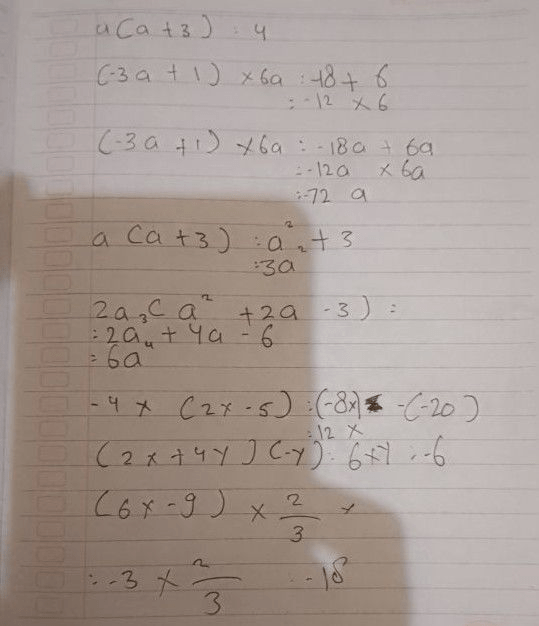 a(a+3) : 4
(-3a + 1) × 6a : -18 + 6
: -12 × 6
(-3a + 1) × 6a : -18a + 6a
: -12a × 6a
: -72 a
a (a + 3) : a² ₂ + 3
: 3a
2a₃( a² + 2a - 3) =
: 2a₄ + 4a - 6
= 6a
-4 × (2x - 5) : (-8x) - (-20)
: 12 x
(2x + 4y) (-y) : 6xy : -6
(6x - 9) × 2/3 ×
: -3 × 2/3 : -18